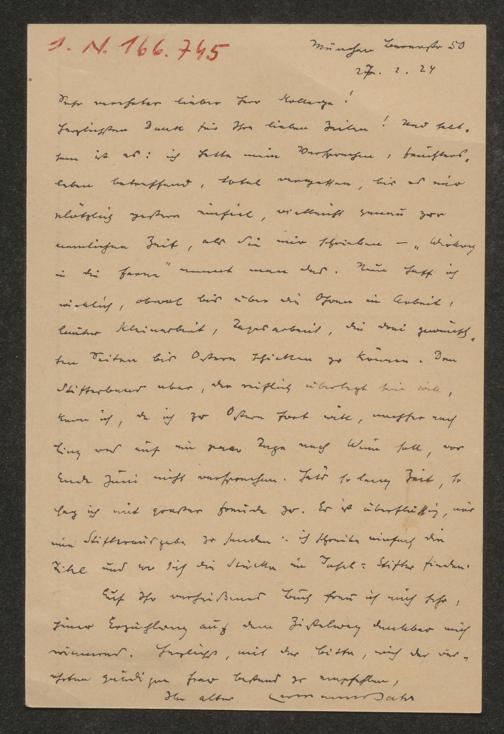 J. N. 166.745
München Barerstr 50
27. 2. 24
Sehr verehrter lieber Herr Kollege!
Herzlichsten Dank für Ihre lieben Zeilen! Und selt-
sam ist es: ich hatte mein Versprechen,
leben betreffend, total vergessen, bis es mir
plötzlich gestern einfiel, vielleicht genau zur
nämlichen Zeit, als Sie mir schrieben – „Wirkung
in die Ferne" nennt man das. Nun hoff ich
wirklich, obwol bis über die Ohren in Arbeit,
lauter Kleinarbeit, Tagesarbeit, die drei gewünsch-
ten Seiten bis Ostern schicken zu können. Den
Stifterband aber, der reiflich überlegt sein will,
kann ich, da ich zu Ostern fort will,
und auf ein paar Tage nach Wien soll, vor
Ende Juni nicht versprechen. Hat's so lang Zeit, so
sag ich mit grosser Freude zu. Es ist überflüssig, mir
eine Stifterausgabe zu senden: ich schreibe einfach die
Titel und wo sich die Stücke im Insel-Stifter finden.
Auf Ihr verheißenes Buch freu ich mich sehr,
jener Erzählung auf dem Zistelweg dankbar mich
erinnernd. Herzlichst, mit der Bitte, mich der ver-
ehrten gnädigen Frau bestens zu empfehlen,
Ihr alter Hermann Bahr